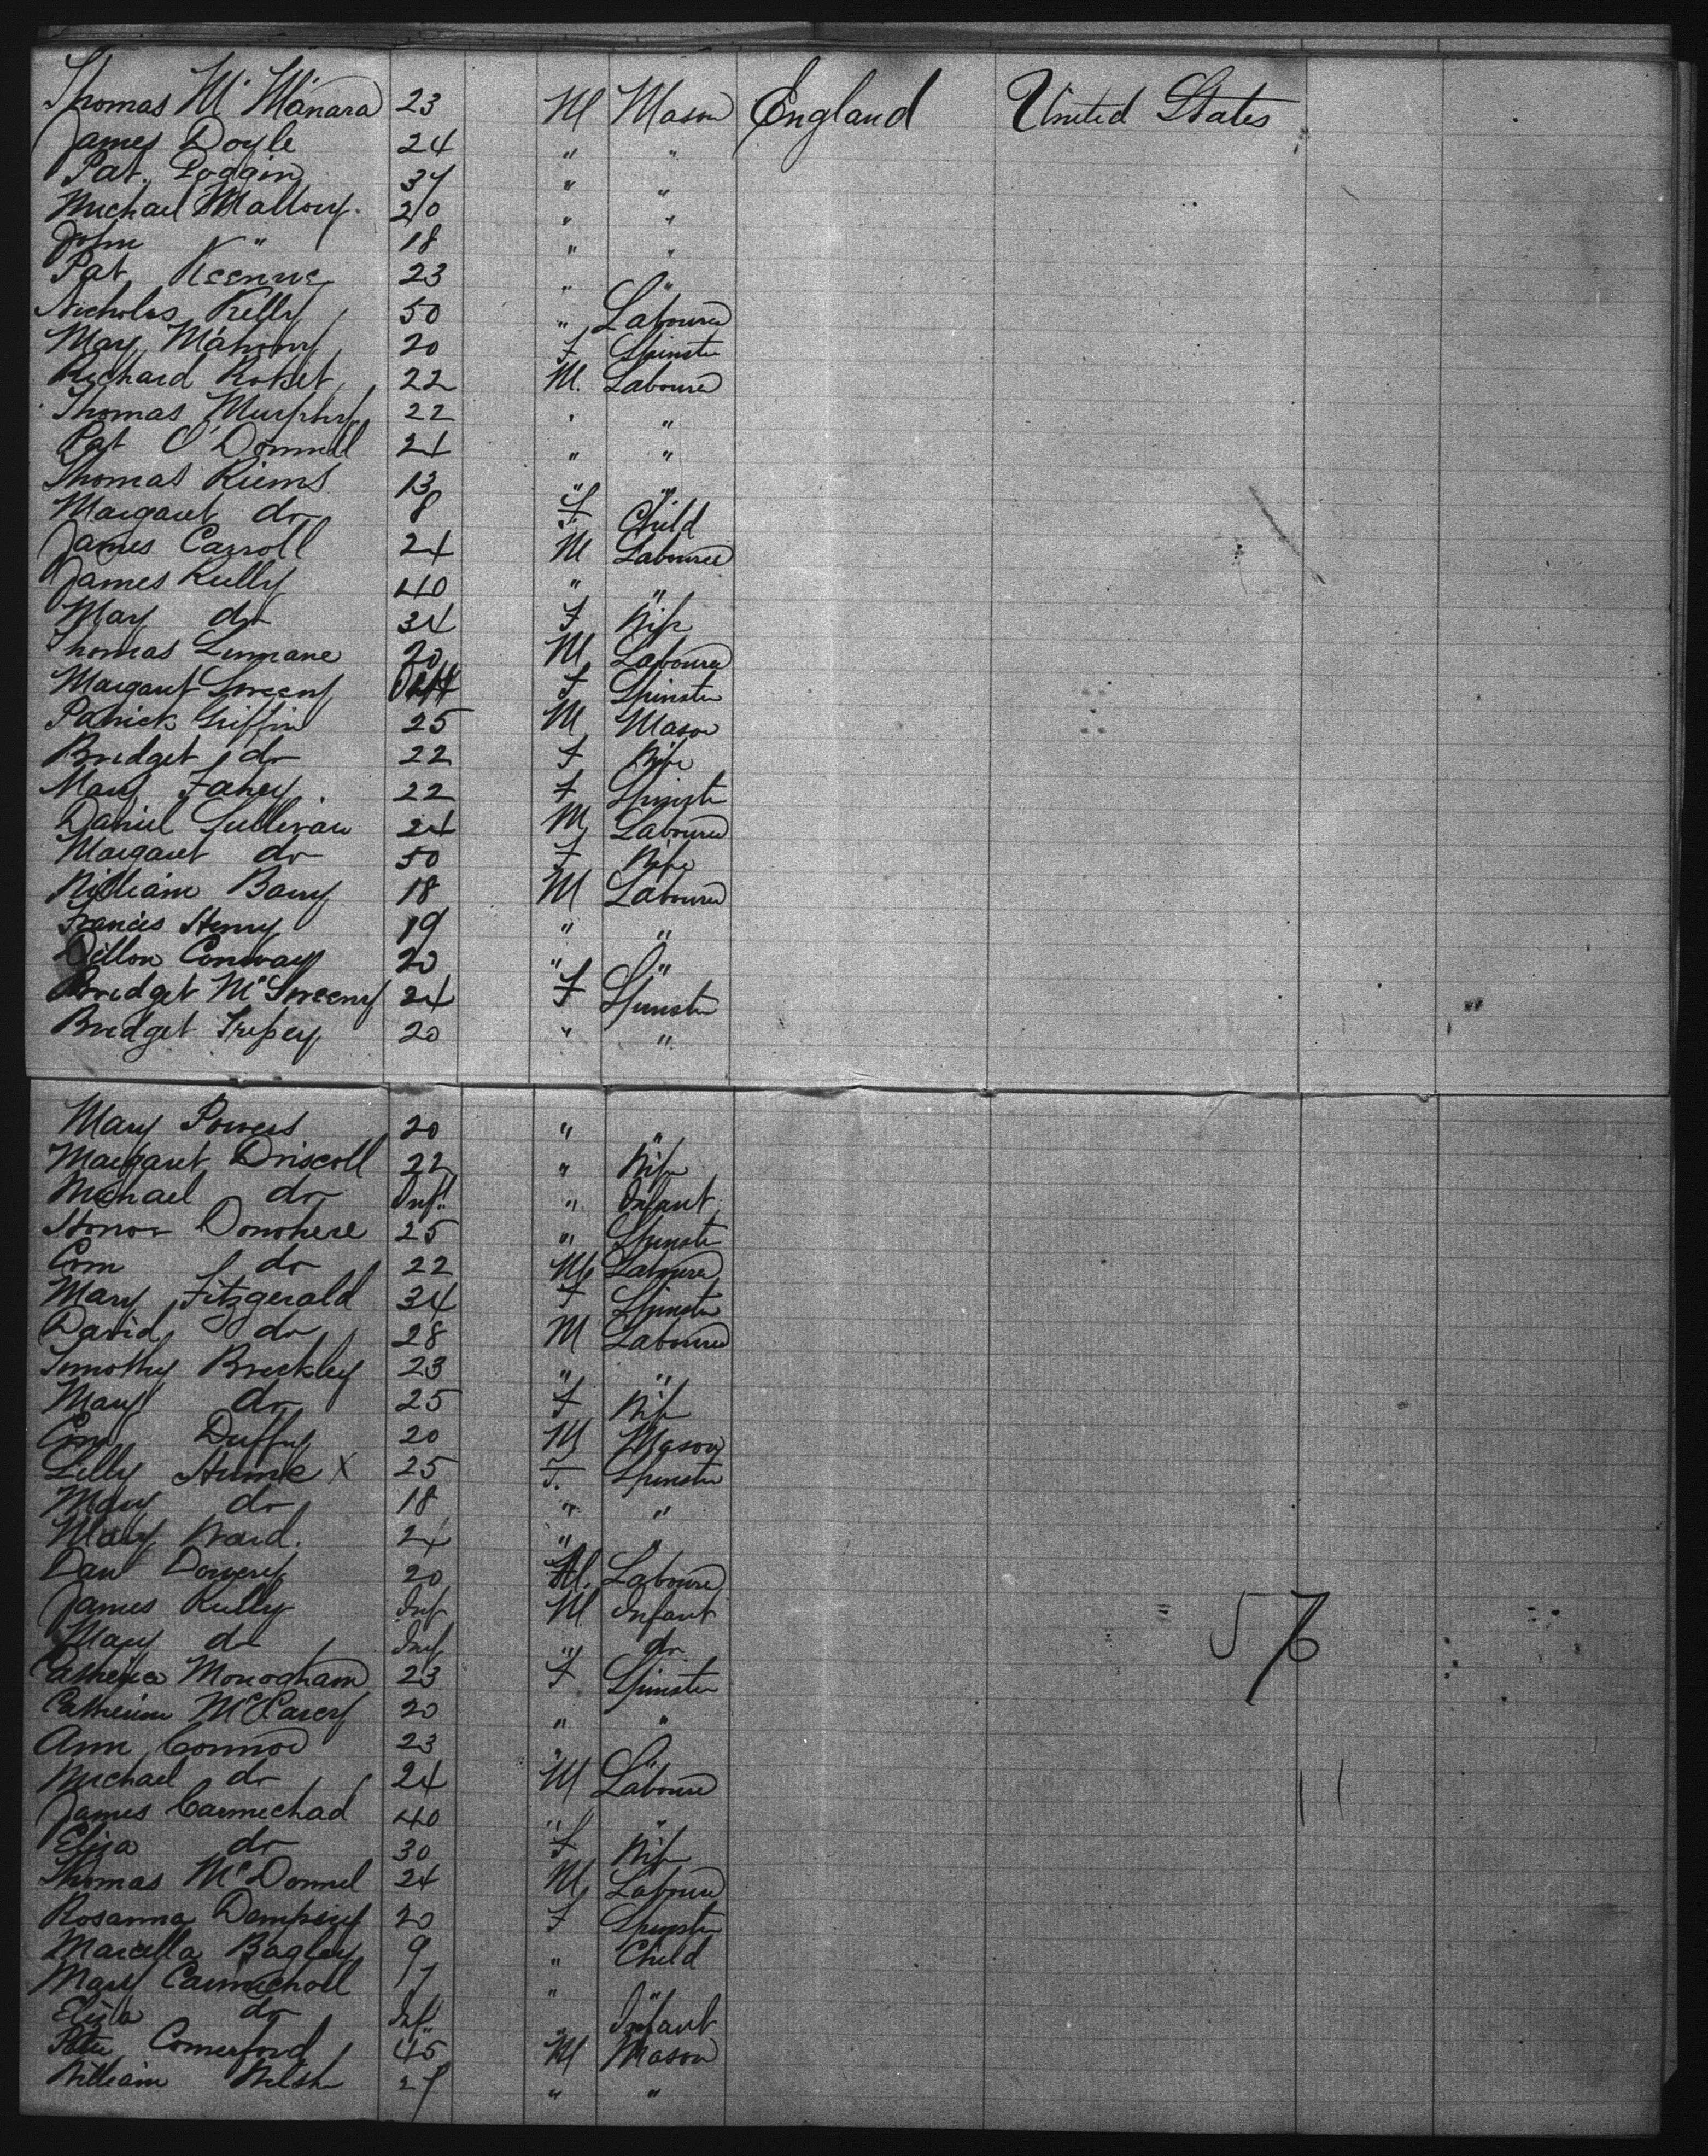 Thomas McManara 23 M Mason England United States
James Doyle 24 " "
Pat. Loggin 37 " "
Michael Mallony 20 " "
John " 18 " "
Pat Keenne 23 " "
Nicholas Kelly 50 " Labourer
Mary Mahony 20 F Spinster
Richard Roket 22 M. Labourer
Thomas Murphy 22 " "
Pat O'Donnell 24 " "
Thomas Riems 13 " "
Margaret do 8 F Child
James Carroll 24 M Labourer
James Rielly 40 " "
Mary do 34 F Wife
Thomas Linnane 20 M Labourer
Margaret Sweeny F Spinster
Patrick Griffin 25 M Mason
Bridget do 22 F Wife
Mary Fahey 22 F Spinster
Daniel Sullivan 24 M Labourer
Margaret do 50 F Wife
William Barry 18 M Labourer
Francis Henry 19 " "
Dillon Conway 20 " "
Bridget McSweeny 24 F Spinster
Bridget 20 " "
Mary Powers 20 " "
Margaret Driscoll 22 " Wife
Michael do Inft. " Infant
Honor Donohere 25 " Spinster
Corn do 22 M Labourer
Mary Fitzgerald 34 F Spinster
David do 28 M Labourer
Timothy Breckley 23 " "
Mary do 25 F Wife
Corn Duffy 20 M Mason
Lilly Hume X 25 F. Spinster
Mary do 18 " "
Mary Ward. 24 " "
Dan Dowery 20 M. Labourer
James Rielly Inf M Infant
Mary do Inf " do
57
Catherine Monogham 23 F Spinster
Catherine McCarey 20 " "
Ann Connor 23 " "
Michael do 24 M Labourer
James Carmichael 40 " "
Eliza do 30 F Wife
Thomas McDonnel 24 M Labourer
Rosanna Dempsey 20 F Spinster
Marcella Bagley 9 " Child
Mary Carmichael 7 " "
Eliza do Inf. " Infant
Peter Comerford 45 M Mason
William Welsh 27 " "